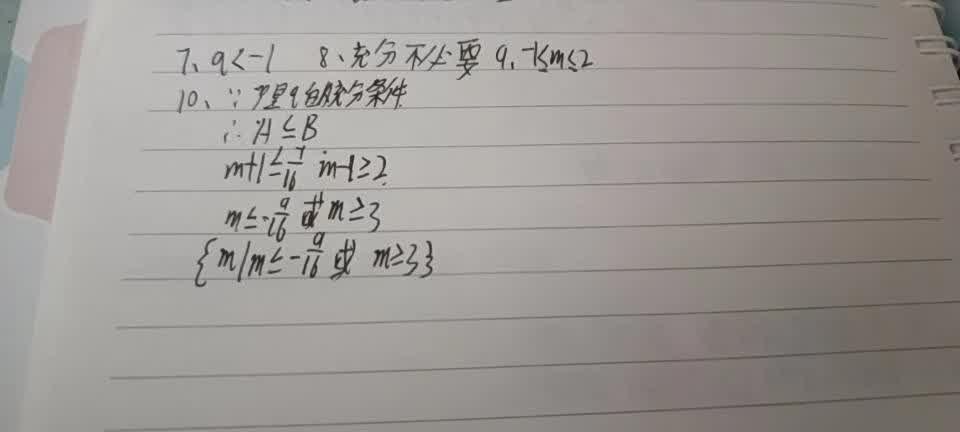 7、a<-1 8、充分不必要 9、-1≤m≤2
10、∵P是q的充分条件
∴A⊆B
m+1≤7/16 m-1≥2
m≤-9/16 或 m≥3
{m|m≤-9/16 或 m≥3}